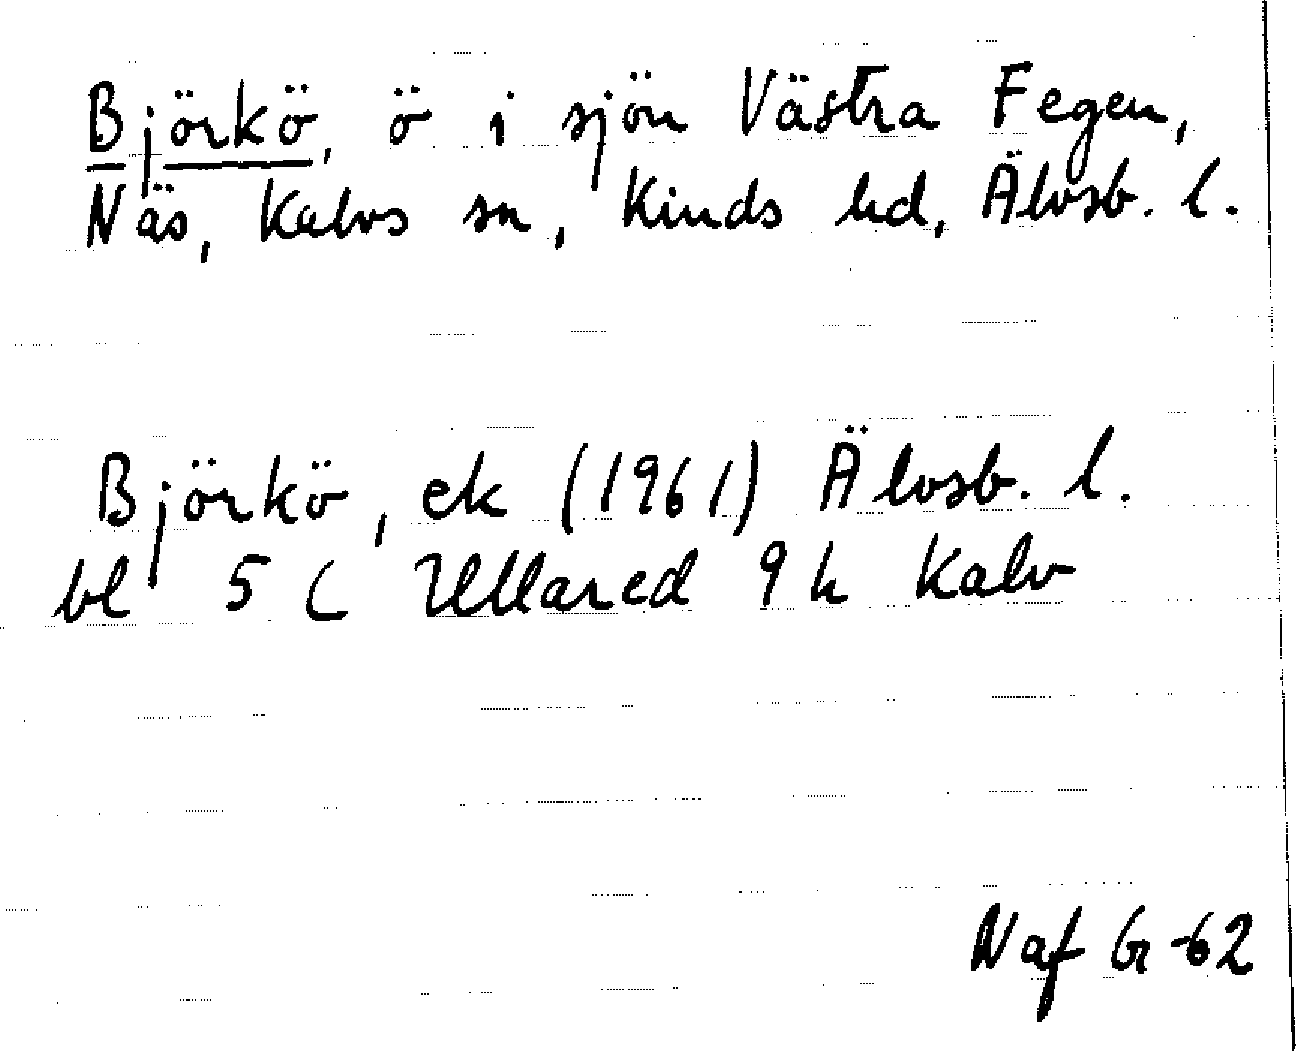 Björkö, ö i sjön Västra Fegen,
Näs, Kalvs sn, Kinds hd, Älvsb. l.
Björkö, ek (1961) Älvsb. l.
bl 5 C Ullared 9 h Kalv
Naf Gr -62